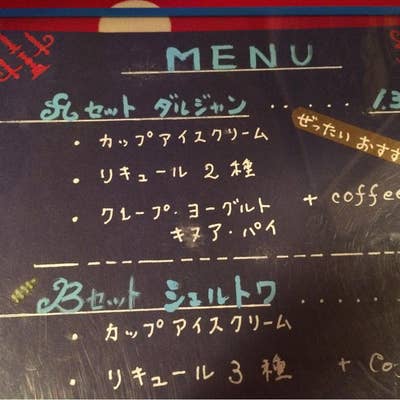 MENU
Aセット ダルジャン ..... 1.3
ぜったい おすす
・カップアイスクリーム
・リキュール 2種
・クレープ・ヨーグルト + coffee
キヌア・パイ
Bセット シェルトワ ......
・カップアイスクリーム
・リキュール 3種 + Co